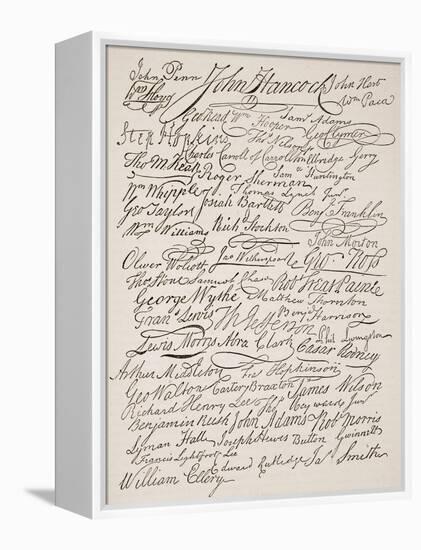 John Penn John Hancock John Hart
Wm Floyd Wm Paca
Geo Read Wm Hooper Sam Adams
Step Hopkins Thos Nelson Geo Clymer
Charles Carroll of Carrollton Elbridge Gerry
Tho M:Kean Roger Sherman Sam Huntington
Wm Whipple Thomas Lynch Junr
Josiah Bartlett Benj Franklin
Geo Taylor
Wm Williams Richd Stockton
John Morton
Oliver Wolcott Jno Witherspoon Geo Ross
Thos Stone Samuel Chase Robt Treat Paine
George Wythe Matthew Thornton
Frans Lewis Th Jefferson Benj Harrison
Lewis Morris Abra Clark Phil Livingston
Caesar Rodney
Arthur Middleton Fra Hopkinson
Geo Walton Carter Braxton James Wilson
Richard Henry Lee Thos Heyward Junr
Benjamin Rush John Adams Robt Morris
Lyman Hall Joseph Hewes Button Gwinnett
Francis Lightfoot Lee
Edward Rutledge Jas Smith
William Ellery